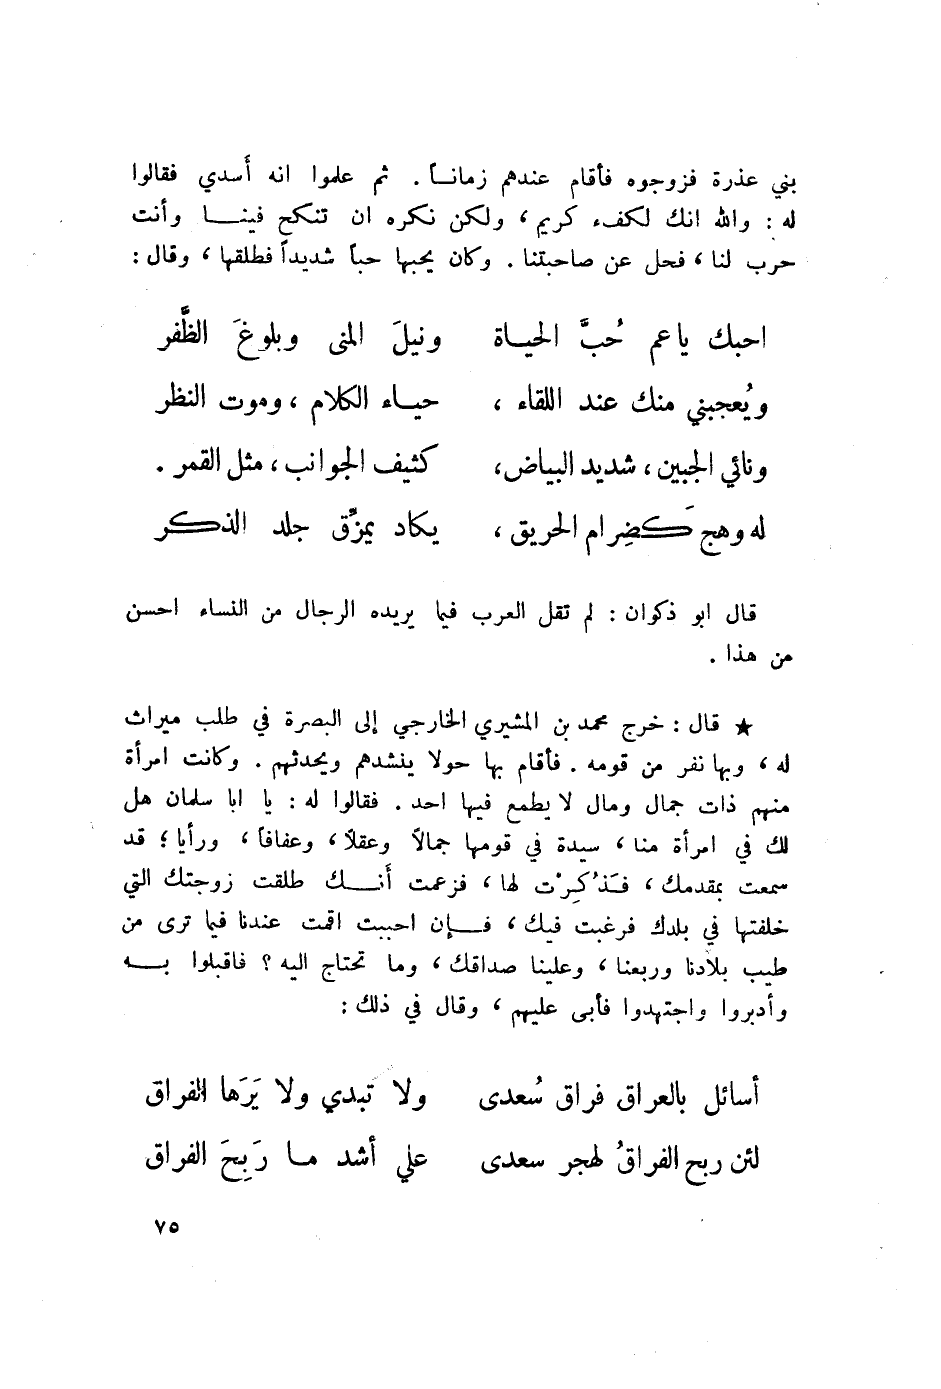 بني عذرة فزوجوه فأقام عندهم زمانـاً . ثم علموا انه أَسدي فقالوا
له : والله انك لكفء كريم ، ولكن نكره ان تنكح فينـــا وأنت
حرب لنا ، فحل عن صاحبتنا . وكان يحبها حباً شديداً فطلقها ، وقال :
احبك ياعم حُبَّ الحيـاة ونيلَ المنى وبلوغَ الظَّفر
ويُعجبني منك عند اللقاء ، حيـاء الكلام ، وموت النظر
ونائي الجبين ، شديد البياض، كثيف الجوانب ، مثل القمر .
له وهج كَـضِرام الحريق ، يكاد يمزِّق جلد الذكـر
قال ابو ذكوان : لم تقل العرب فيما يريده الرجال من النساء احسن
من هذا .
★ قال : خرج محمد بن المشيري الخارجي إلى البصرة في طلب ميراث
له ، وبها نفر من قومه . فأقام بها حولا ينشدهم ويحدثهم . وكانت امرأة
منهم ذات جمال ومال لا يطمع فيها احد . فقالوا له : يا ابا سلمان هل
لك في امرأة منا ، سيدة في قومها جمالاً وعقلاً ، وعفافاً ، ورأيا ؛ قد
سمعت بمقدمك ، فـَذُكِرْت لها ، فزعمت أَنــك طلقت زوجتك التي
خلفتها في بلدك فرغبت فيك ، فــإن احببت اقمت عندنا فيما ترى من
طيب بلادنا وربعنا ، وعلينا صداقك ، وما تحتاج اليه ؟ فاقبلوا بــه
وأدبروا واجتهدوا فأبى عليهم ، وقال في ذلك :
أسائل بالعراق فراق سُعدى ولا تبدي ولا يَرَها الفراق
لئن ربح الفراقُ لهجر سعدى علي أشد مـا رَبِحَ الفراق
٧٥